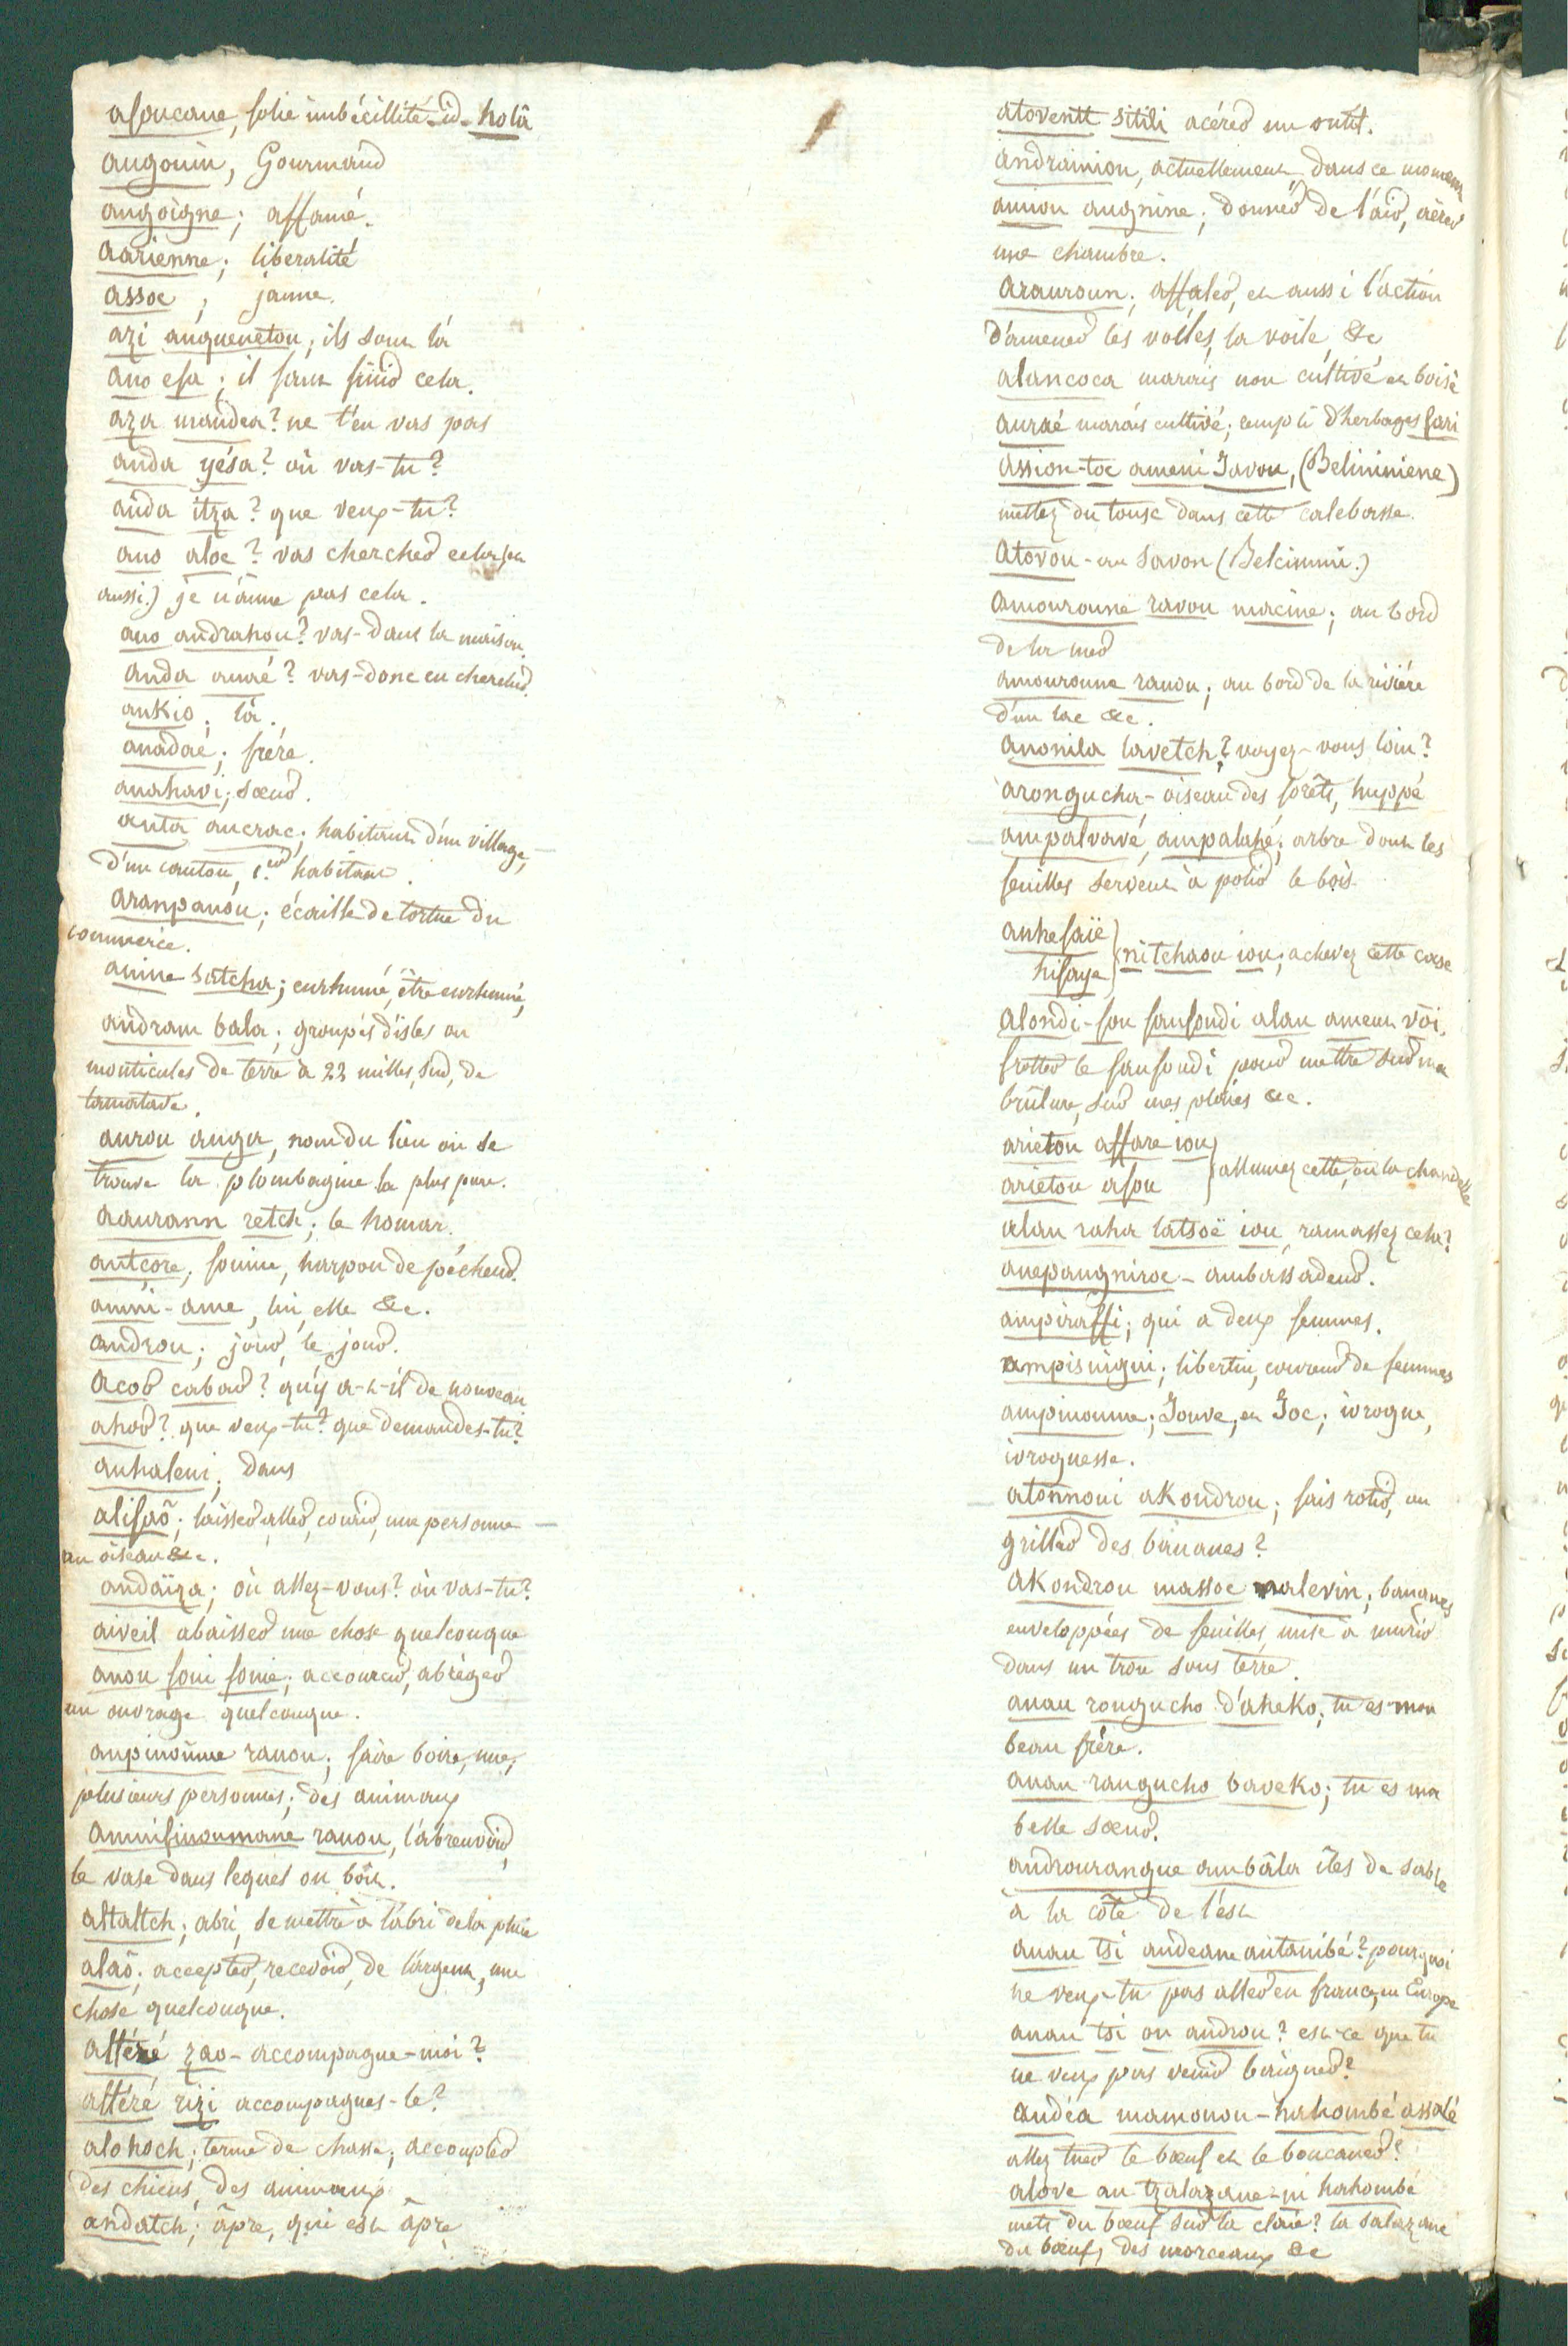 asoucane, folie imbécillité id. holâ
angouin, Gourmand
angoigne; affamé.
aarienne; liberalité
assoc; jaune.
azi anguenetou; ils sont là
ano efa; il faut finir cela.
aza mandea? ne t'en vas pas
anda yésa? où vas-tu?
anda itza? que veux-tu?
ano aloe? vas chercher cela (ou
aussi.) je n'aime pas cela.
ano andrahou? vas-dans la maison.
anda anaé? vas-donc en chercher.
ankio; là.
anadaé; frére.
anahavi; sœur.
anta ancrac; habitant d'un village,
d'un canton, 1.er habitant.
aranpanou; écaille de tortue du
commerce.
anine satcha; enrhumé, être enrhumé,
andram bala; groupés d'isles ou
monticules de terre à 22 milles, sud, de
tamatave.
aurou anga, nom du lieu où se
trouve la plombagine la plus pure.
aaurann retch; le homar.
antçore; fouine, harpon de pécheur.
anini-ame, lui, elle &c.
androu; jour, le jour.
acor cabar? qu'y a-t-il de nouveau
ahor? que veux-tu? que demandes-tu?
anhaleni; dans
alifaõ; laisser, aller, courir, une personne
un oiseau &c.
andaïza; où allez-vous? où vas-tu?
aiveil abaisser une chose quelconque
anou foui fouie; accourcir, abréger
un ouvrage quelconque.
anpinoùme ranou; faire boire, une,
plusieurs personnes; des animaux
aminfinoumane ranou, l'abreuvoir,
le vase dans lequel on boit.
altaltch; abri, se mettre à l'abri de la pluie
alaõ; accepter, recevoir, de l'argent, une
chose quelconque.
altéré zao- accompagne-moi?
altéré rizi accompagnes-le?
alohoch; terme de chasse; accoupler
des chiens, des animaux.
andatch; âpre, qui est âpre
atoventt sitili acérer un outil.
andrainion, actuellement, dans ce moment
aniou angnine; donner de l'air, aérer
une chambre.
arauroun; affaler, et aussi l'action
d'amener les voiles, la voile, &c
alancoca marais non cultivé et boisé
auraé marais cultivé; rempli d'herbages fari
assion-toc ameni Javou, (Belininiene)
mettez du tousc dans cette calebasse.
Atovou- au Savon (Belcimini.)
amouroune ravou macine; au bord
de la mer
amouroune ranou; au bord de la riviére
d'un lac &c.
anonila lavetch? voyez-vous loin?
arongucha- oiseau des forêts, huppé
ampalvavé, ampalahé; arbre dont les
feuilles servent à polir le bois.
anhefaïe
hifaye } nitchaou iou; achevez cette case
alondi-fou faufoudi alau ameun voi,
frotter le faufoudi pour mettre sur ma
brûlure, sur mes plaies &c.
arietou affare iou
arietou afou } allumez cette, ou la chandelle
alau raha latsoë iou, ramassez cela?
anepaugniroe- ambassadeur.
ampiraffi; qui a deux femmes.
ampisnigui; libertin, coureur de femmes
ampinoume; Jouve, et Joc; ivrogne,
ivrognesse.
atonnoui akondrou; fais rotir, ou
griller des bananes?
akondrou massoe nalevin; bananes
enveloppées de feuilles, mise à murir
dans un trou sous terre.
anau rongucho d'aheko; tu es mon
beau frére.
anau rangucho baveko; tu es ma
belle sœur.
androurangue ambâla îles de sable
a la côte de l'est
anau tsi andeane antanibé? pourquoi
ne veux-tu pas aller en france, en Europe
anau tsi on androu? est-ce que tu
ne veux pas venir baigner?
andéa mamonou-nahombé assalé
allez tuer le bœuf et le boucaner?
alove an tzalazane-ni hahombé
mets du bœuf sur la claie? la salazane
du bœuf, des morceaux &c